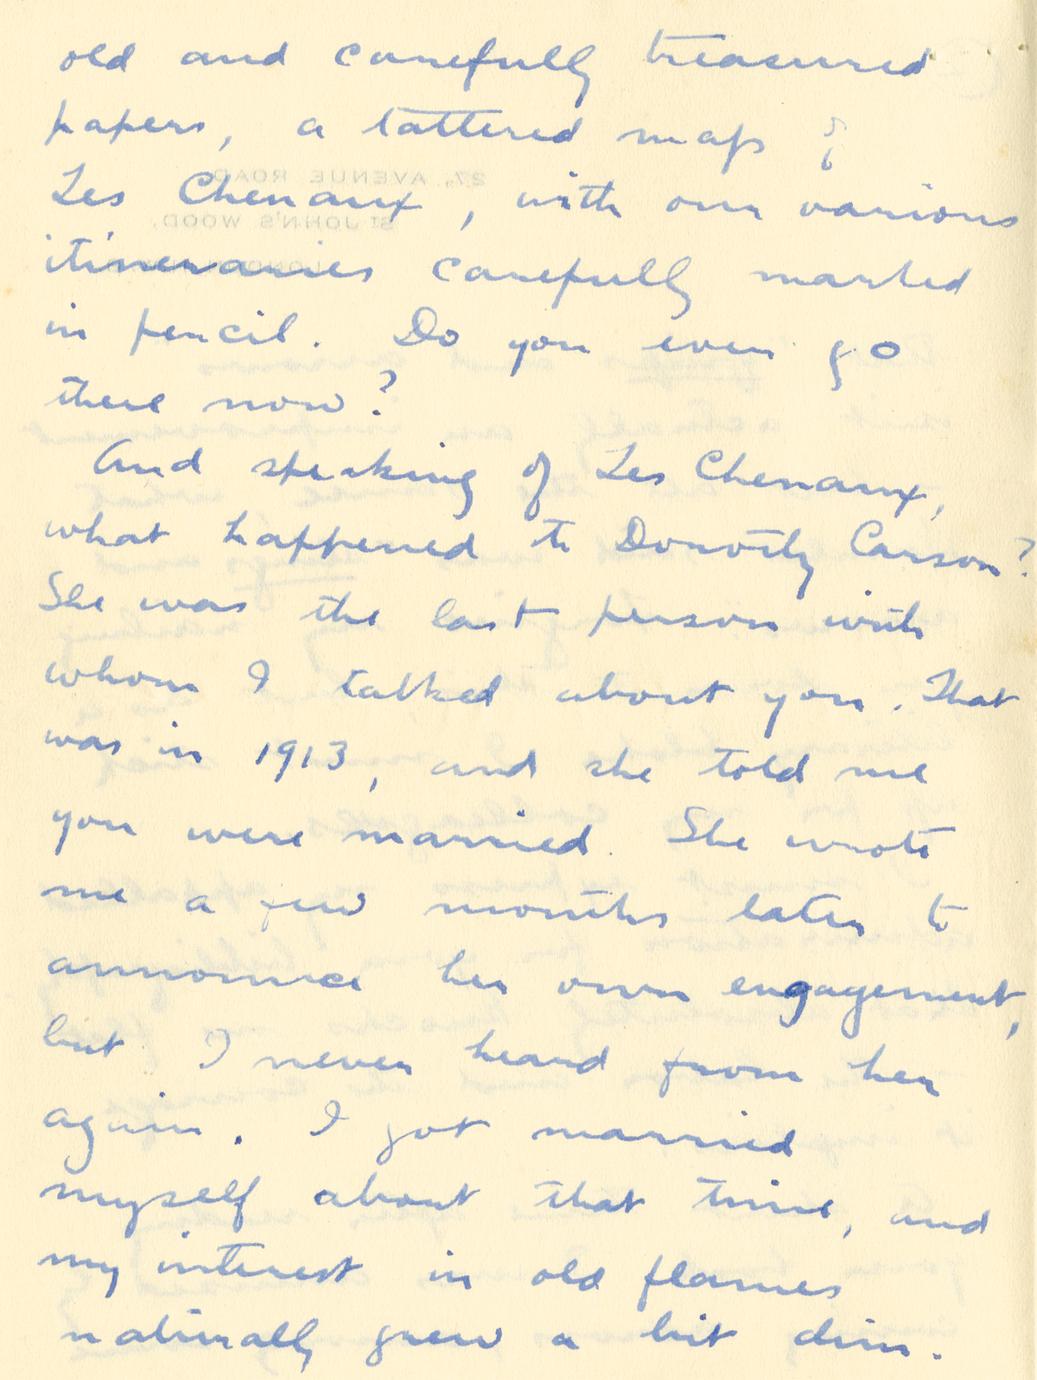 old and carefully treasured
papers, a tattered map of
Les Chenaux, with our various
itineraries carefully marked
in pencil. Do you ever go
there now?
And speaking of Les Chenaux,
what happened to Dorothy Carson?
She was the last person with
whom I talked about you. That
was in 1913, and she told me
you were married. She wrote
me a few months later to
announce her own engagement,
but I never heard from her
again. I got married
myself about that time, and
my interest in old flames
naturally grew a bit dim.
27, AVENUE ROAD
ST JOHN'S WOOD,